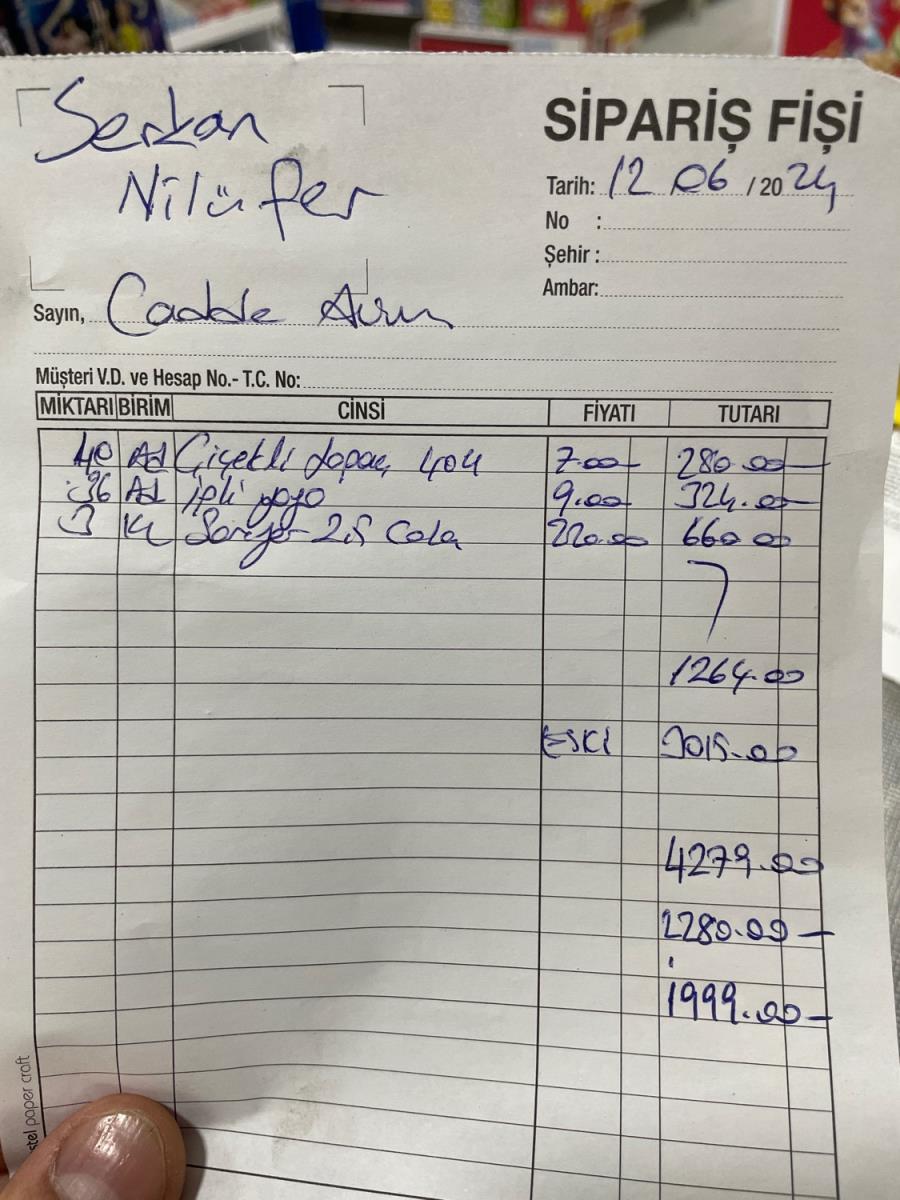 Serkan
Nilüfer
SİPARİŞ FİŞİ
Tarih: 12 06 / 20 24
No :
Şehir :
Ambar:
Sayın, Cadde Avm
Müşteri V.D. ve Hesap No.- T.C. No:
MİKTARI BİRİM CİNSİ FİYATI TUTARI
40 Ad Çiçekli topaç 404 7.00 280.00
36 Ad İpli yoyo 9.00 324.00
3 2,5 Cola 220.00 660.00
1264.00
ESKİ 3015.00
4279.00
2280.00
1999.00
stel paper craft